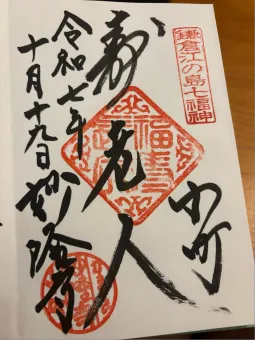 鎌倉江の島七福神
小町
寿老人
令和七年
十月十九日
妙隆寺